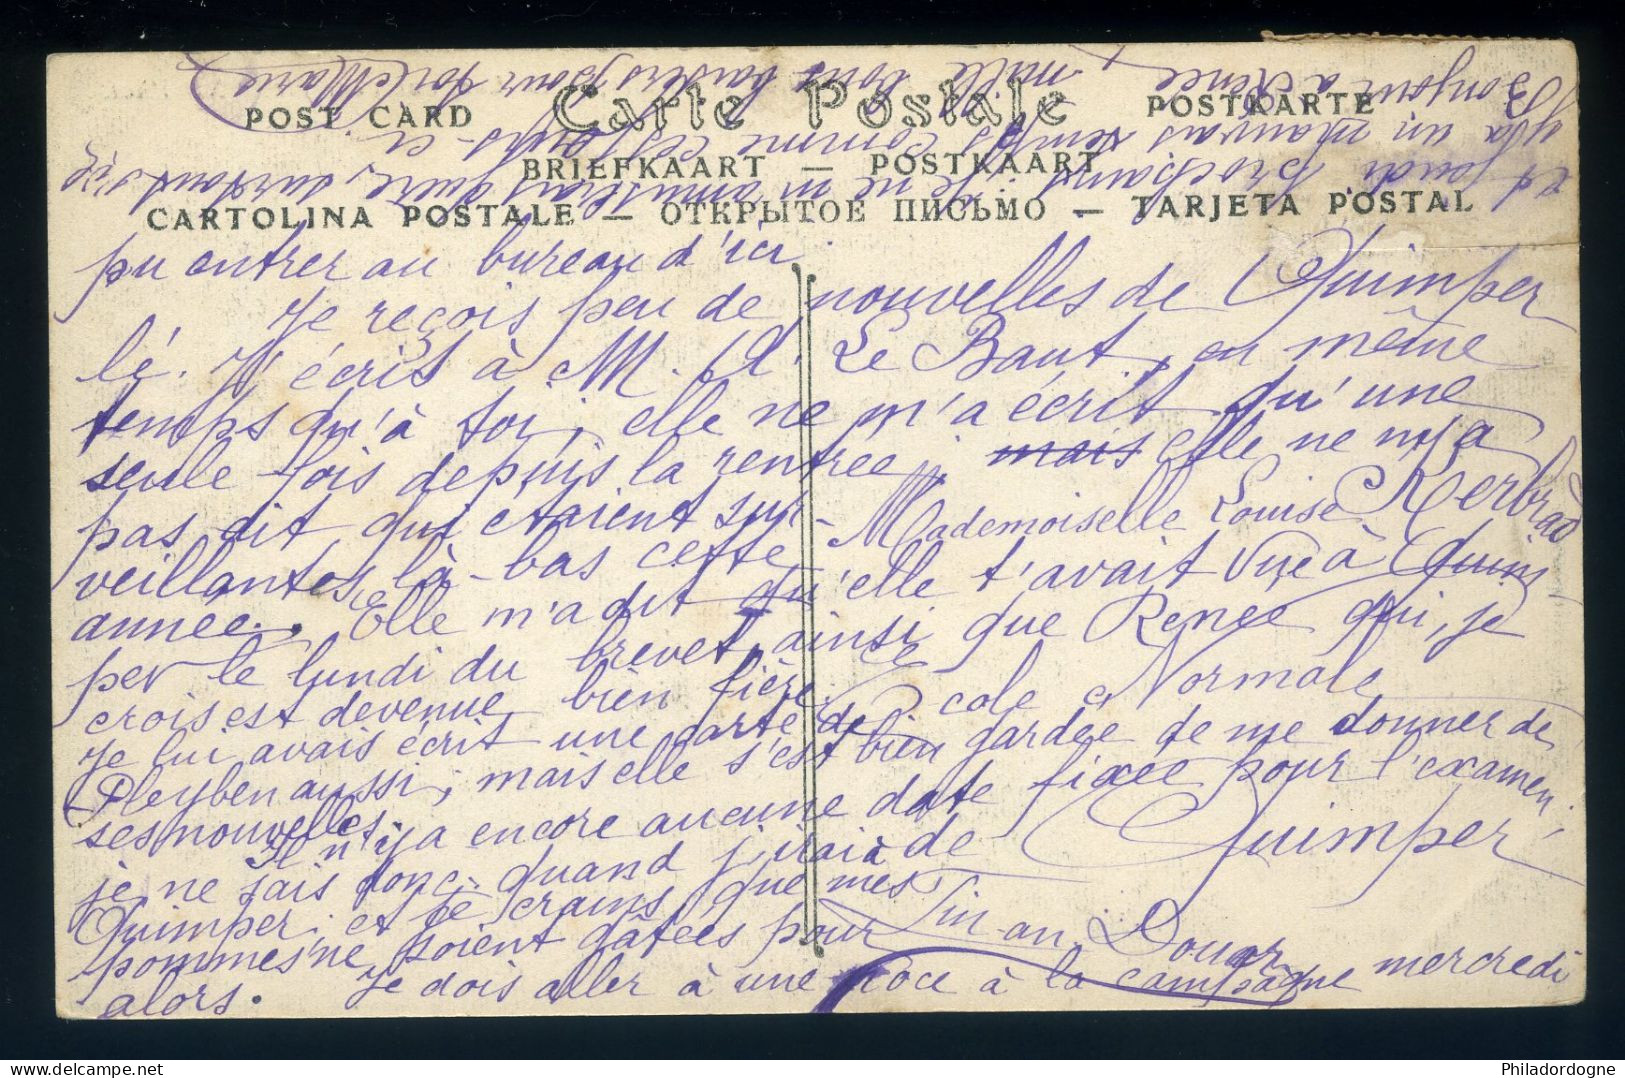 POST CARD Carte Postale POSTKARTE
BRIEFKAART — POSTKAART
CARTOLINA POSTALE — ОТКРЫТОЕ ПИСЬМО — TARJETA POSTAL
pu entrer au bureau d'ici
Je reçois peu de nouvelles de Quimper
lé. J'écris à M. A. Le Baut, en même
temps qu'à toi; elle ne m'a écrit qu'une
seule fois depuis la rentrée, mais elle ne m'a
pas dit qui étaient sur-
Mademoiselle Louise Kerbrat
veillantes là-bas cette
année. Elle m'a dit qu'elle t'avait vue à Quim
per le lundi du brevet, ainsi que Renée qui, je
crois est devenue bien fière.
Ecole Normale
Je lui avais écrit une carte de
Pleyben aussi; mais elle s'est bien gardée de me donner de
ses nouvelles.
Il n'y a encore aucune date fixée pour l'examen;
je ne sais donc quand j'irai à
de Quimper
Quimper; et je crains que mes
pommes ne soient gâtées pour
Tin an Douar
alors. Je dois aller à une noce à la campagne mercredi
et jeudi prochains. Je ne m'amuserai guère, surtout s'il
y a un mauvais temps comme ces jours-ci.
Bonjour à Renée, mille bons baisers pour toi. Marie
Philadordogne